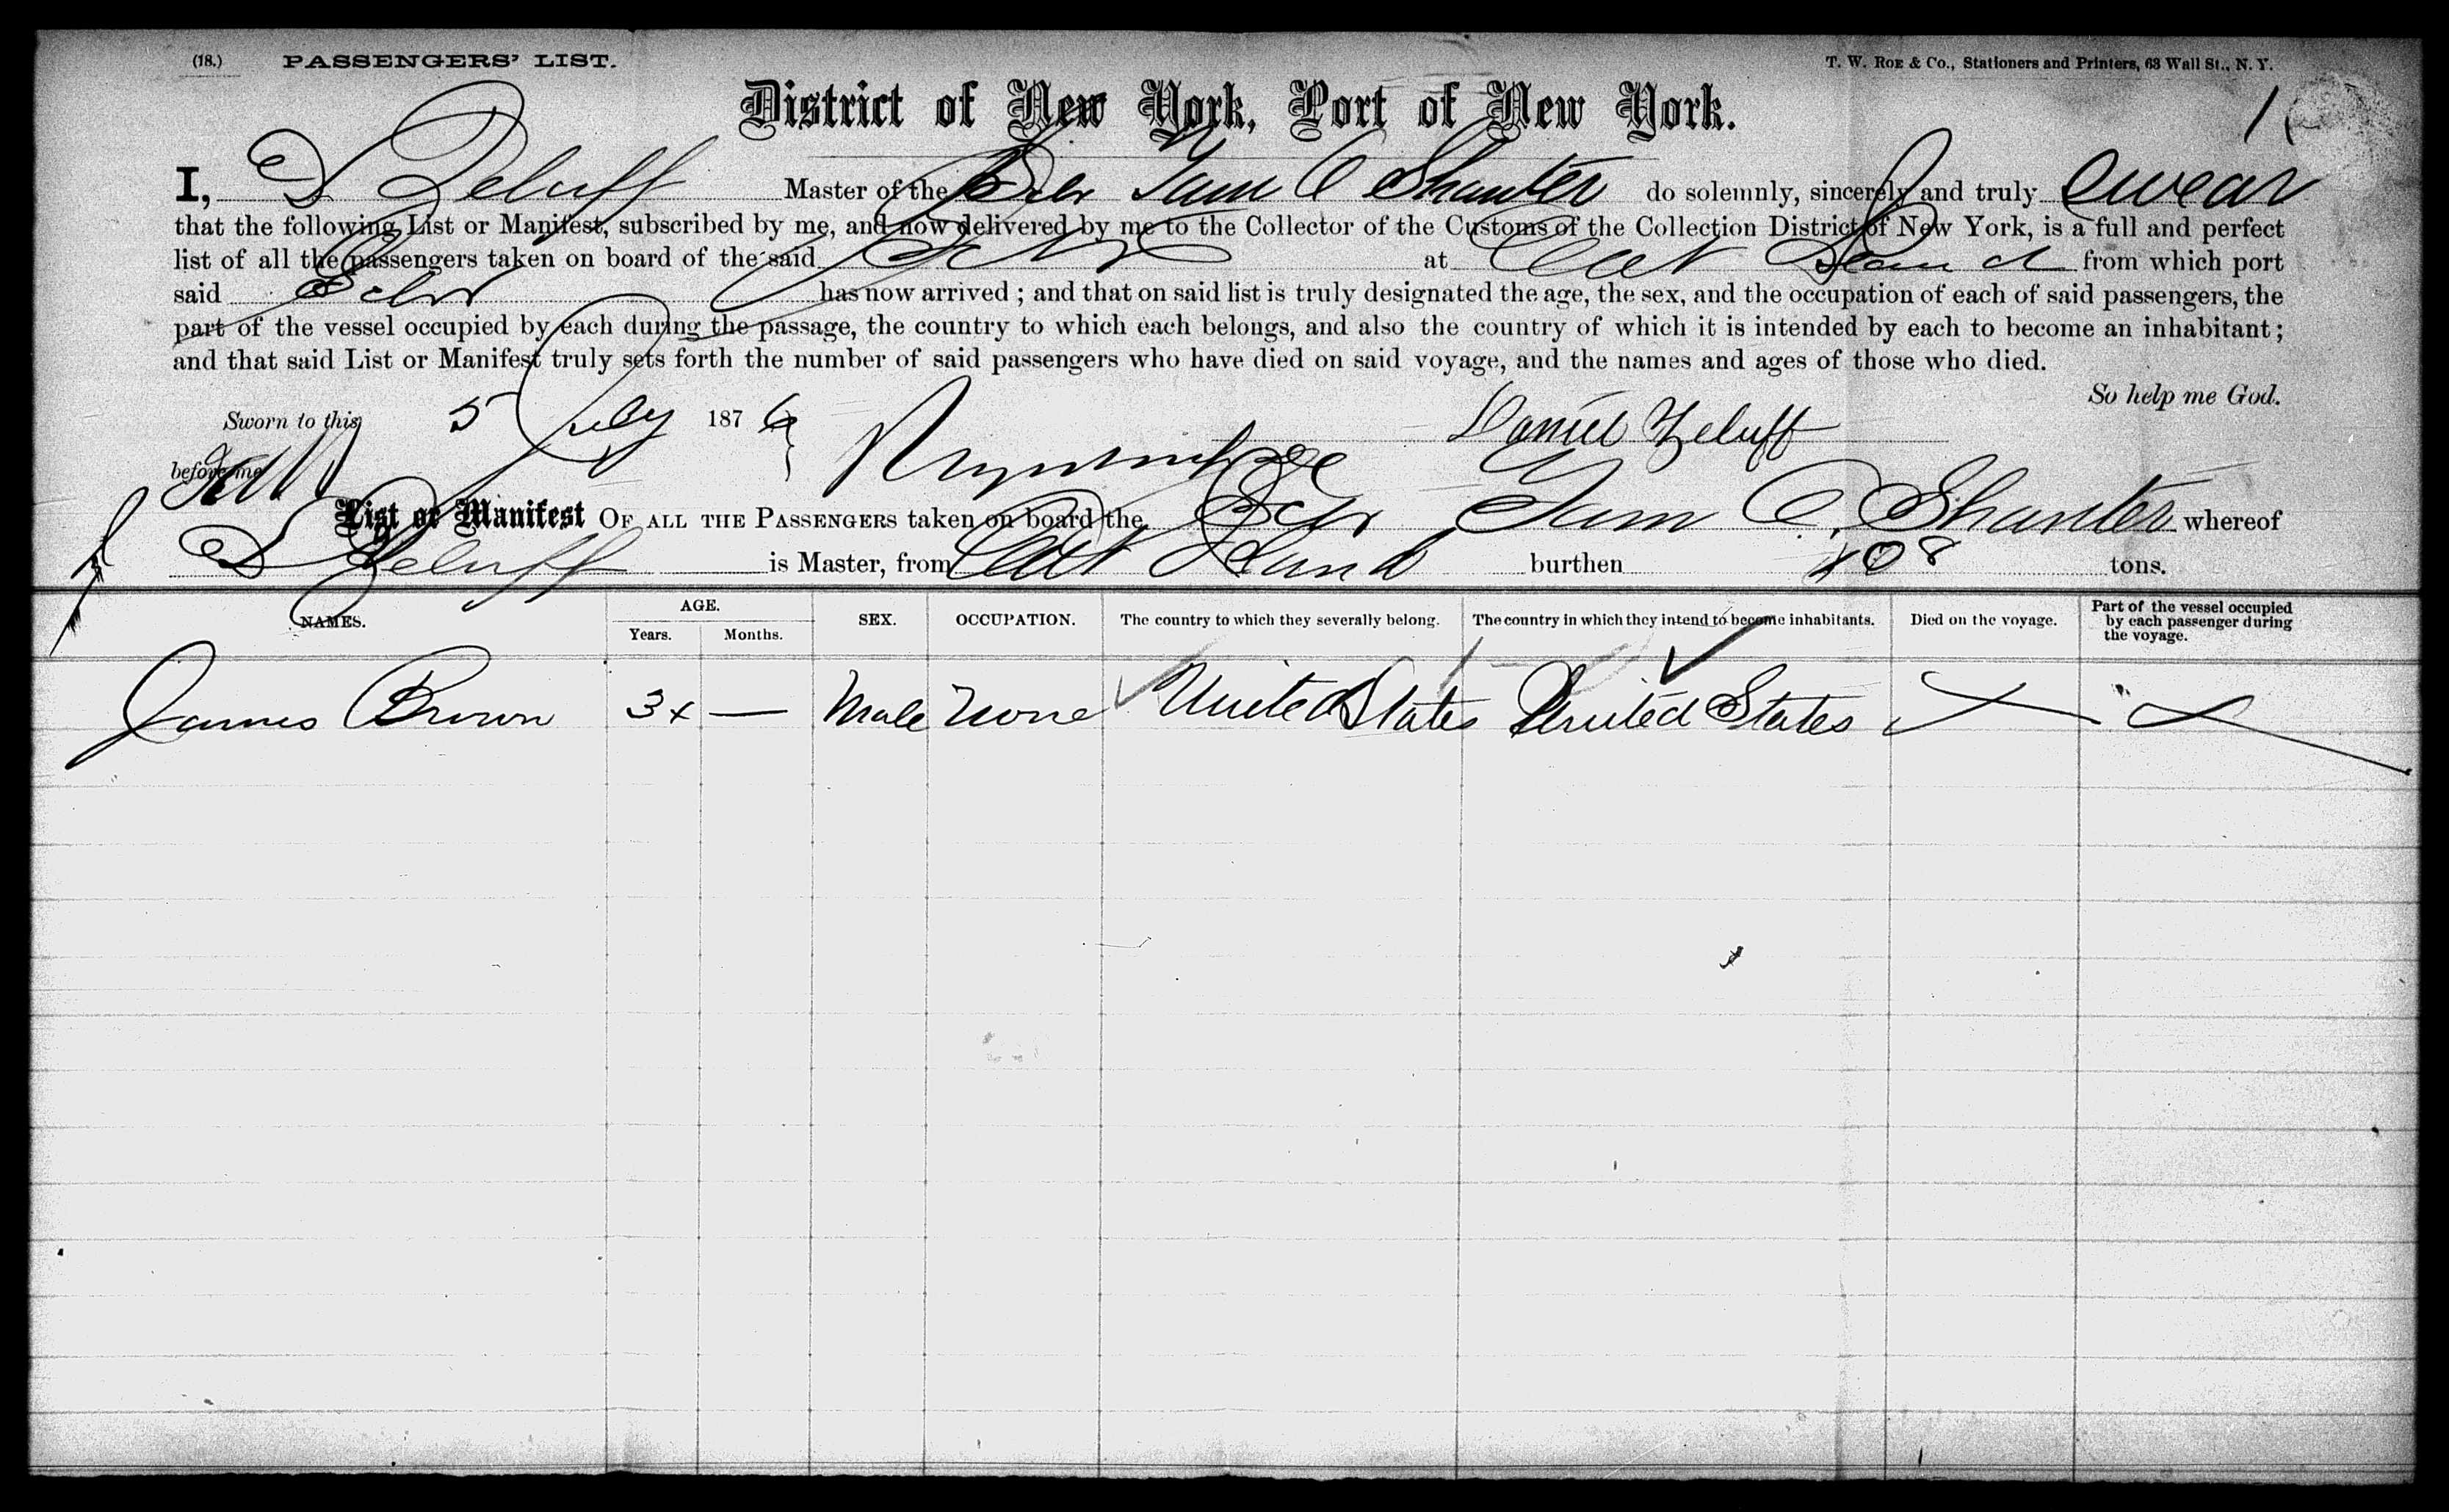 (18.) PASSENGERS' LIST. T. W. ROE & CO., Stationers and Printers, 63 Wall St., N. Y.
District of New York, Port of New York. 1
I, D Zeluff Master of the Schr Tam O Shanter do solemnly, sincerely and truly swear
that the following List or Manifest, subscribed by me, and now delivered by me to the Collector of the Customs of the Collection District of New York, is a full and perfect
list of all the passengers taken on board of the said Schr at Cat Island from which port
said Schr has now arrived ; and that on said list is truly designated the age, the sex, and the occupation of each of said passengers, the
part of the vessel occupied by each during the passage, the country to which each belongs, and also the country of which it is intended by each to become an inhabitant ;
and that said List or Manifest truly sets forth the number of said passengers who have died on said voyage, and the names and ages of those who died.
So help me God.
Sworn to this 5 July 1876 Daniel Zeluff
before me
List or Manifest OF ALL THE PASSENGERS taken on board the Schr Tam O. Shanter whereof
D Zeluff is Master, from Cat Island burthen 408 tons.
NAMES. AGE. Years. Months. SEX. OCCUPATION. The country to which they severally belong. The country in which they intend to become inhabitants. Died on the voyage. Part of the vessel occupied by each passenger during the voyage.
James Brown 3x — Male None United States United States